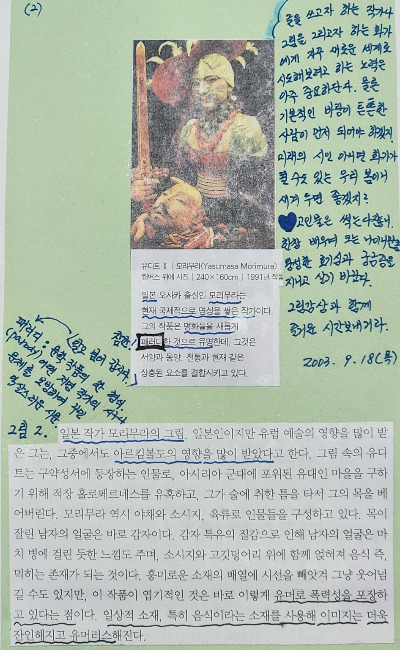 (2)
글을 쓰고자 하는 작가나
그림을 그리고자 하는 화가
에게 자꾸 새로운 세계로
시도해보려고 하는 노력은
아주 중요하단다. 물론
기본적인 바탕이 튼튼한
사람이 먼저 되어야 하겠지.
미래의 시인 아니면 화가가
될 수도 있는
새겨 두면 좋겠지?
한창 배우며 크는 나이니만큼
왕성한 호기심과 궁금증을
지니고 살기 바란다.
그림감상과 함께
즐거운 시간보내거라.
2003. 9. 18(목)
유디트 Ⅱ | 모리무라(Yasumasa Morimura)
캔버스 위에 사진 | 240×160cm | 1991년 작품
일본 오사카 출신인 모리무라는
현재 국제적으로 명성을 쌓은 작가이다.
그의 작품은 명화들을 새롭게
패러디한 것으로 유명한데, 그것은
서양과 동양, 전통과 현재 같은
상충된 요소를 결합시키고 있다.
패러디 :
(parody) 어떤 저명 작가의 시나
문체를 모방하여 지은
그림 2.
일본 작가 모리무라의 그림. 일본인이지만 유럽 예술의 영향을 많이 받
은 그는, 그중에서도 아르킴볼도의 영향을 많이 받았다고 한다. 그림 속의 유디
트는 구약성서에 등장하는 인물로, 아시리아 군대에 포위된 유대인 마을을 구하
기 위해 적장 홀로페르네스를 유혹하고, 그가 술에 취한 틈을 타서 그의 목을 베
어버린다. 모리무라 역시 야채와 소시지, 육류로 인물들을 구성하고 있다. 목이
잘린 남자의 얼굴은 바로 감자이다. 감자 특유의 질감으로 인해 남자의 얼굴은 마
치 병에 걸린 듯한 느낌도 주며, 소시지와 고깃덩어리 위에 함께 얹혀져 음식 즉,
먹히는 존재가 되는 것이다. 흥미로운 소재의 배열에 시선을 빼앗겨 그냥 웃어넘
길 수도 있지만, 이 작품이 엽기적인 것은 바로 이렇게 유머로 폭력성을 포장하
고 있다는 점이다. 일상적 소재, 특히 음식이라는 소재를 사용해 이미지는 더욱
잔인해지고 유머러스해진다.